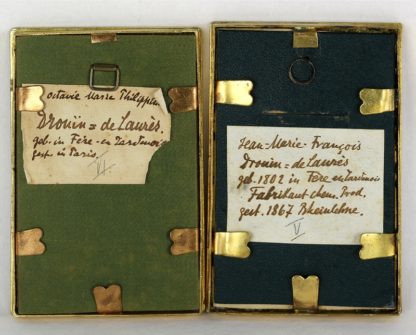 Octavie Marie Philippine
Drouin = de Laurès.
geb. in Fère-en Tardenois
gest. in Paris.
VI
Jean-Marie-François
Drouin = de Laurès
geb. 1802 in Fère en Tardenois
Fabrikant chem. Prod.
gest. 1867 Rheinlehne.
V